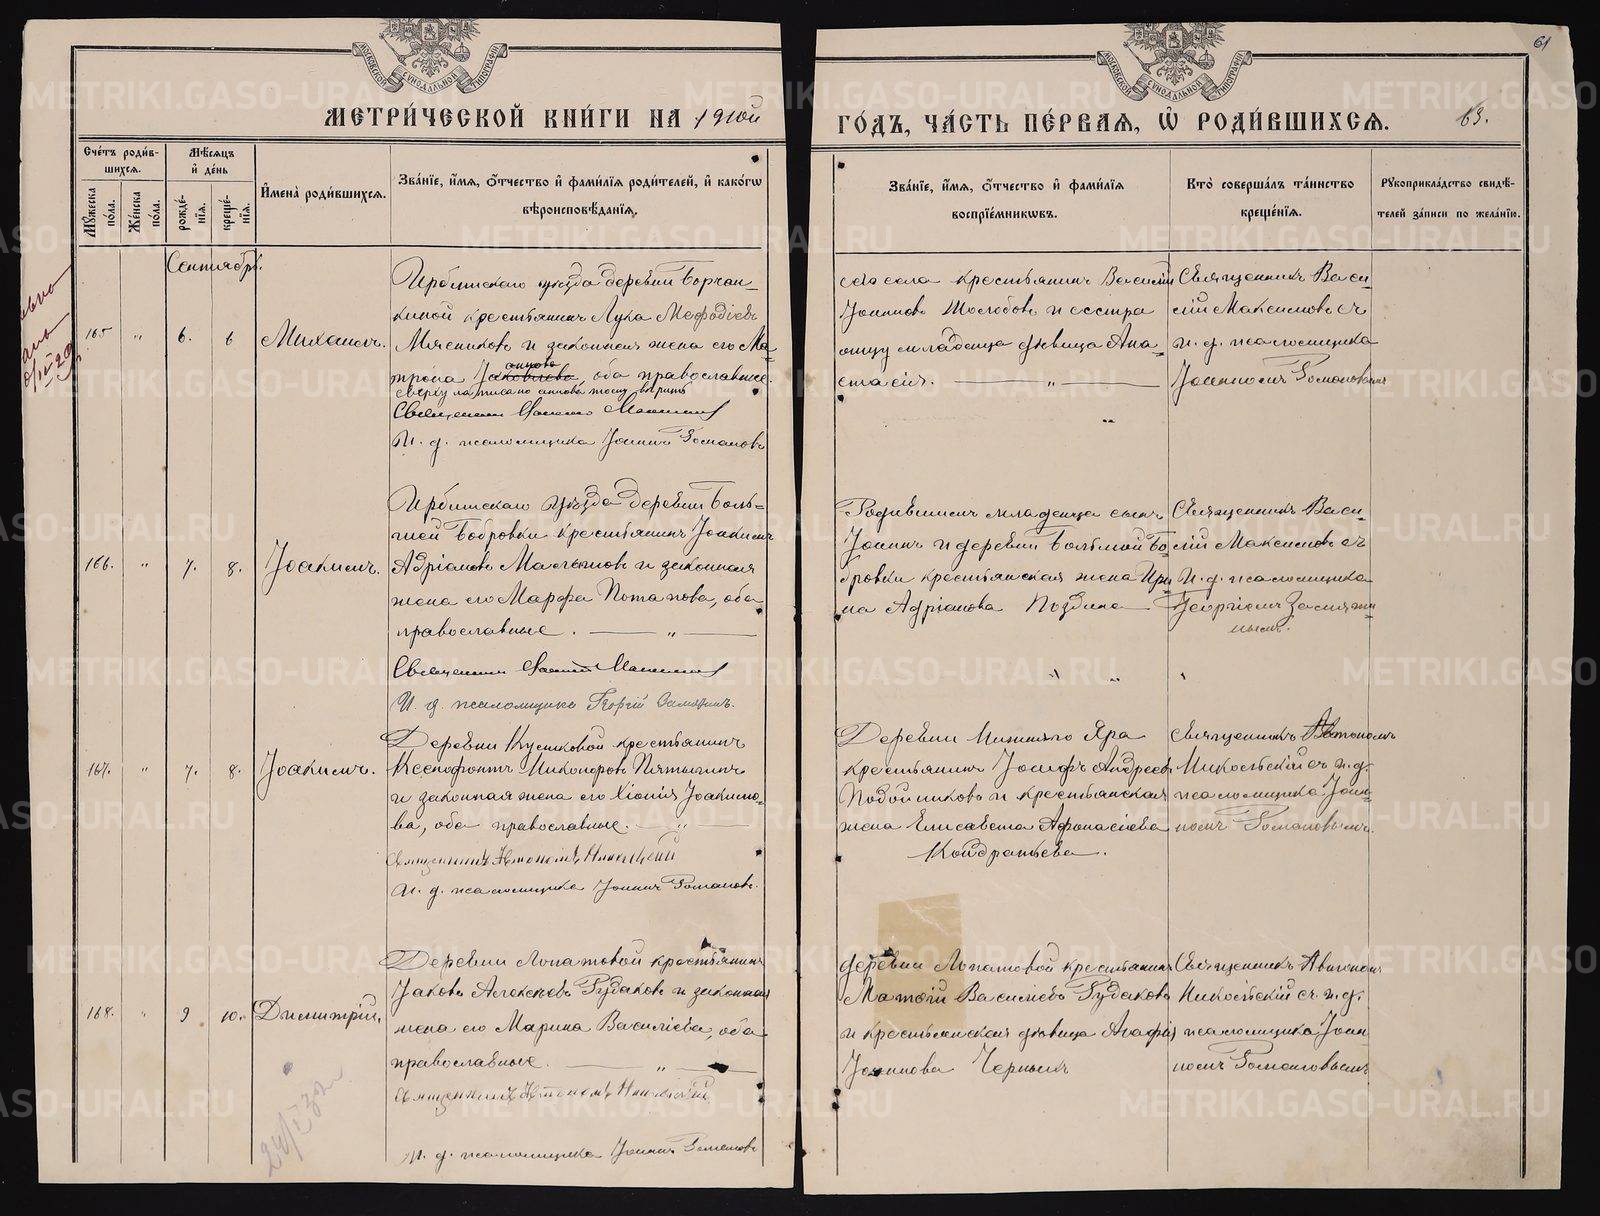 МОСКОВСКОЙ СѴНОДАЛЬНОЙ ТИПОГРАФІИ
МОСКОВСКОЙ СѴНОДАЛЬНОЙ ТИПОГРАФІИ
61
МЕТРИ́ЧЕСКОЙ КНИ́ГИ НА 1910й
ГО́ДЪ, ЧА́СТЬ ПЕ́РВАЯ, Ѡ РОДИ́ВШИХСЯ. 63.
Сче́тъ роди́вшихся.
Мѣ́сяцъ и де́нь
Му́жеска по́ла.
Же́нска по́ла.
рожде́нія.
креще́нія.
И҆мена̀ роди́вшихся.
Зва́нїе, и҆́мя, ѻ҆́тчество и҆ фами́лїя роди́телей, и҆ како́гѡ
вѣроисповѣ́данїя.
Зва́нїе, и҆́мя, ѻ҆́тчество и҆ фами́лїя
воспрїе́мникѡвъ.
Кто̀ соверша́лъ та́инство
креще́нїя.
Рꙋкоприкла́дство свидѣ́-
телей за́писи по жела́нїю.
Сентябрь.
165 " 6. 6 Михаилъ.
Ирбитскаго уѣзда деревни Борчан-
киной крестьянинъ Лука Меѳодіевъ
Мясниковъ и законная жена его Ма-
трона Яковлева оба православные.
И. д. псаломщика Іоаннъ Романовъ
села крестьянинъ Василій
Іоанновъ и сестра
отцу младенца дѣвица Ана-
стасія. "
Священникъ Васи-
лій Максимовъ съ
и. д. псаломщика
Іоанномъ Романовымъ
166. " 7. 8. Іоакимъ.
Ирбитскаго уѣзда деревни Боль-
шой Бобровки крестьянинъ Іоакимъ
Адріановъ и законная
жена его Марфа Потапова, оба
православные. "
Священникъ Василій Максимовъ
И. д. псаломщика Георгій
Родившимъ младенца сынъ
Іоаннъ и деревни Большой Бо-
бровки крестьянская жена Ири-
на Адріанова Поздина
Священникъ Васи-
лій Максимовъ съ
И. д. псаломщика
Георгіемъ
167. " 7. 8. Іоакимъ.
Деревни Кусиковой крестьянинъ
Ксенофонтъ Никоноровъ Пятыгинъ
и законная жена его Хіонія Іоакимо-
ва, оба православные. "
И. д. псаломщика Іоаннъ Романовъ.
Деревни Нижняго Яра
крестьянинъ Іосифъ Андреевъ
Подойниковъ и крестьянская
жена Елисавета Афонасіева
Кондратьева.
Священникъ Автономъ
Никольскій съ и. д.
псаломщика Іоан-
номъ Романовымъ.
168. " 9 10. Димитрій.
Деревни Лопатовой крестьянинъ
Іаковъ Алексѣевъ Рудаковъ и законная
жена его Марина Василіева, оба
православные. "
И. д. псаломщика Іоаннъ Романовъ
деревни Лопатовой крестьянинъ
Матѳій Василіевъ Рудаковъ
и крестьянская дѣвица Агафія
Іоаннова Черныхъ
Священникъ Автономъ
Никольскій съ и. д.
псаломщика Іоан
номъ Романовымъ
METRIKI.GASO-URAL.RU